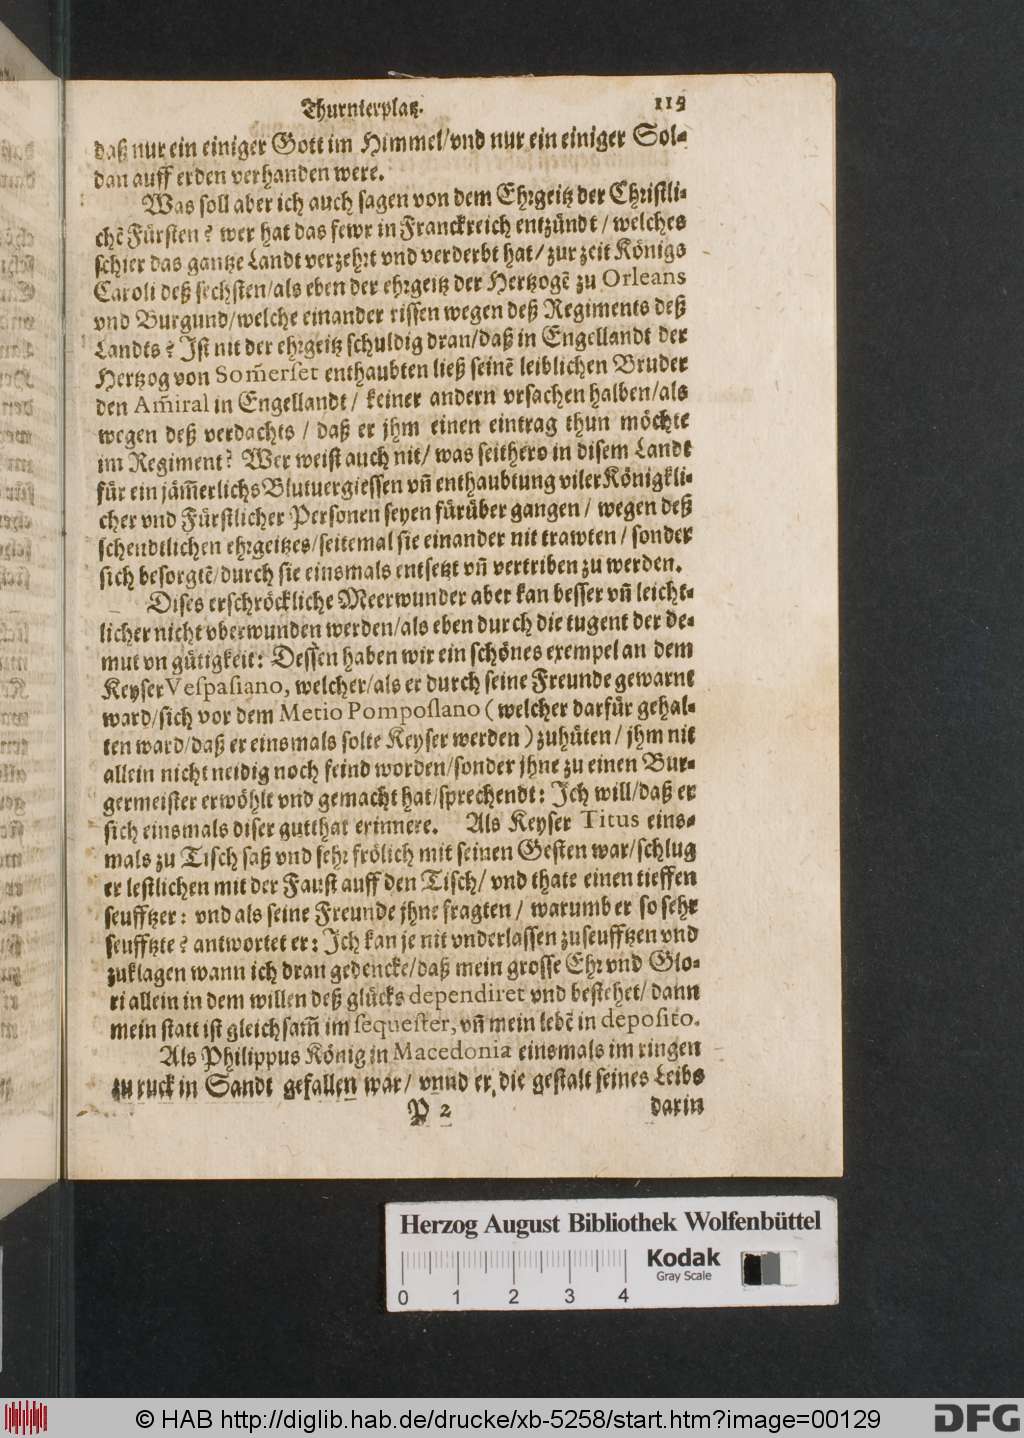 Thurnierplatz. 115
daß nur ein einiger Gott im Himmel/vnd nur ein einiger Sol-
dan auff erden verhanden were.
Was soll aber ich auch sagen von dem Ehrgeitz der Christli-
chē Fürsten? wer hat das fewr in Franckreich entzündt/welches
schier das gantze Landt verzehrt vnd verderbt hat/zur zeit Königs
Caroli deß sechsten/als eben der ehrgeitz der Hertzogē zu Orleans
vnd Burgund/welche einander rissen wegen deß Regiments deß
Landts? Ist nit der ehrgeitz schuldig dran/daß in Engellandt der
Hertzog von Som̃erset enthaubten ließ seinē leiblichen Bruder
den Am̃iral in Engellandt/ keiner andern vrsachen halben/als
wegen deß verdachts/ daß er jhm einen eintrag thun möchte
im Regiment? Wer weist auch nit/ was seithero in disem Landt
für ein jäm̃erlichs Blutuergiessen vñ enthaubtung viler Königkli-
cher vnd Fürstlicher Personen seyen fürüber gangen/ wegen deß
schendtlichen ehrgeitzes/seitemal sie einander nit trawten/ sonder
sich besorgtē/durch sie einsmals entsetzt vñ vertriben zu werden.
Dises erschröckliche Meerwunder aber kan besser vñ leicht-
licher nicht vberwunden werden/als eben durch die tugent der de-
mut vn gütigkeit: Dessen haben wir ein schönes exempel an dem
Keyser Vespasiano, welcher/als er durch seine Freunde gewarnt
ward/sich vor dem Metio Pomposiano (welcher darfür gehal-
ten ward/daß er einsmals solte Keyser werden) zuhüten/ jhm nit
allein nicht neidig noch feind worden/sonder jhne zu einen Bur-
germeister erwöhlt vnd gemacht hat/sprechendt: Ich will/daß er
sich einsmals diser gutthat erinnere. Als Keyser Titus eins-
mals zu Tisch saß vnd sehr frölich mit seinen Gesten war/schlug
er lestlichen mit der Faust auff den Tisch/ vnd thate einen tieffen
seufftzer: vnd als seine Freunde jhne fragten/ warumb er so sehr
seufftzte? antwortet er: Ich kan je nit vnderlassen zuseufftzen vnd
zuklagen wann ich dran gedencke/daß mein grosse Ehr vnd Glo-
ri allein in dem willen deß glücks dependiret vnd bestehet/ dann
mein statt ist gleichsam̃ im sequester, vñ mein lebē in deposito.
Als Philippus König in Macedonia einsmals im ringen
zu ruck in Sandt gefallen war/ vnnd er die gestalt seines Leibs
P 2 darin
Herzog August Bibliothek Wolfenbüttel
Kodak
Gray Scale
0 1 2 3 4
© HAB http://diglib.hab.de/drucke/xb-5258/start.htm?image=00129
DFG